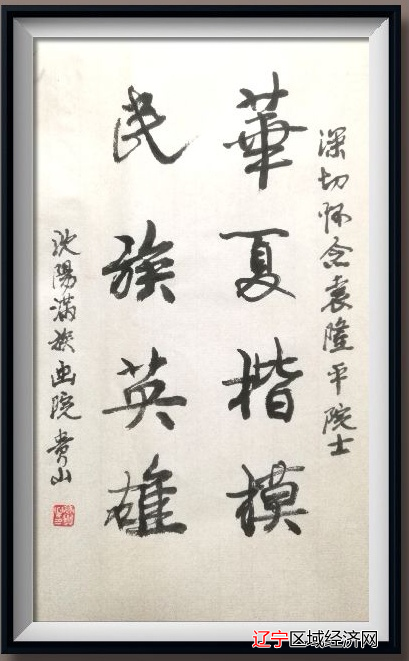 深切怀念袁隆平院士
華夏楷模
民族英雄
沈陽滿族画院 贵山
辽宁区域经济网